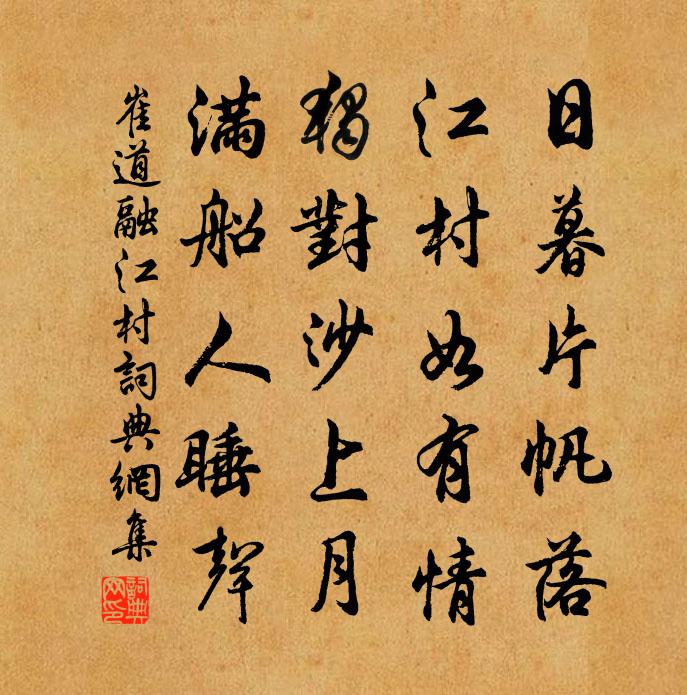 日暮片帆落
江村如有情
獨對沙上月
滿船人睡聲
崔道融江村詞典網集
詞典網印